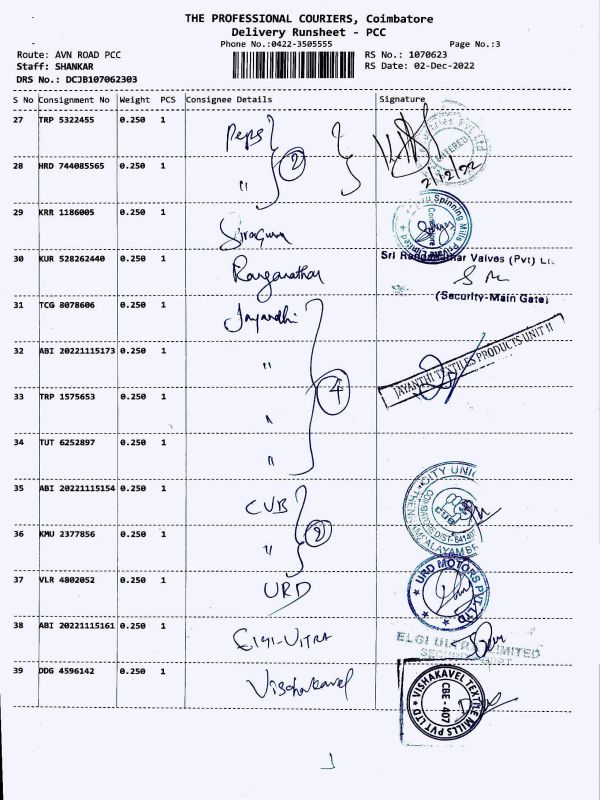 THE PROFESSIONAL COURIERS, Coimbatore
Delivery Runsheet - PCC
Phone No.:0422-3505555 Page No.:3
Route: AVN ROAD PCC RS No.: 1070623
Staff: SHANKAR RS Date: 02-Dec-2022
DRS No.: DCJB107062303
S No Consignment No Weight PCS Consignee Details Signature
27 TRP 5322455 0.250 1 Peps
2
2/12/22
28 HRD 744085565 0.250 1 "
29 KRR 1186005 0.250 1
Spinning Mills Private Limited
30 KUR 528262440 0.250 1 Ranganathar
Valves (Pvt) Lt.
(Security-Main Gate)
31 TCG 8078606 0.250 1 Jayandhi
32 ABI 20221115173 0.250 1 "
JAYANTHI TEXTILES PRODUCTS UNIT II
33 TRP 1575653 0.250 1 "
4
34 TUT 6252897 0.250 1 "
35 ABI 20221115154 0.250 1 CUB
CITY UNIO
CUB
36 KMU 2377856 0.250 1 "
2
37 VLR 4802052 0.250 1 URD
URD MOTORS PVT LTD
38 ABI 20221115161 0.250 1 Elgi-Ultra
ELGI ULTRA LIMITED
39 DDG 4596142 0.250 1 Vischakavel
VISHAKAVEL TEXTILE MILLS PVT LTD
CBE - 407